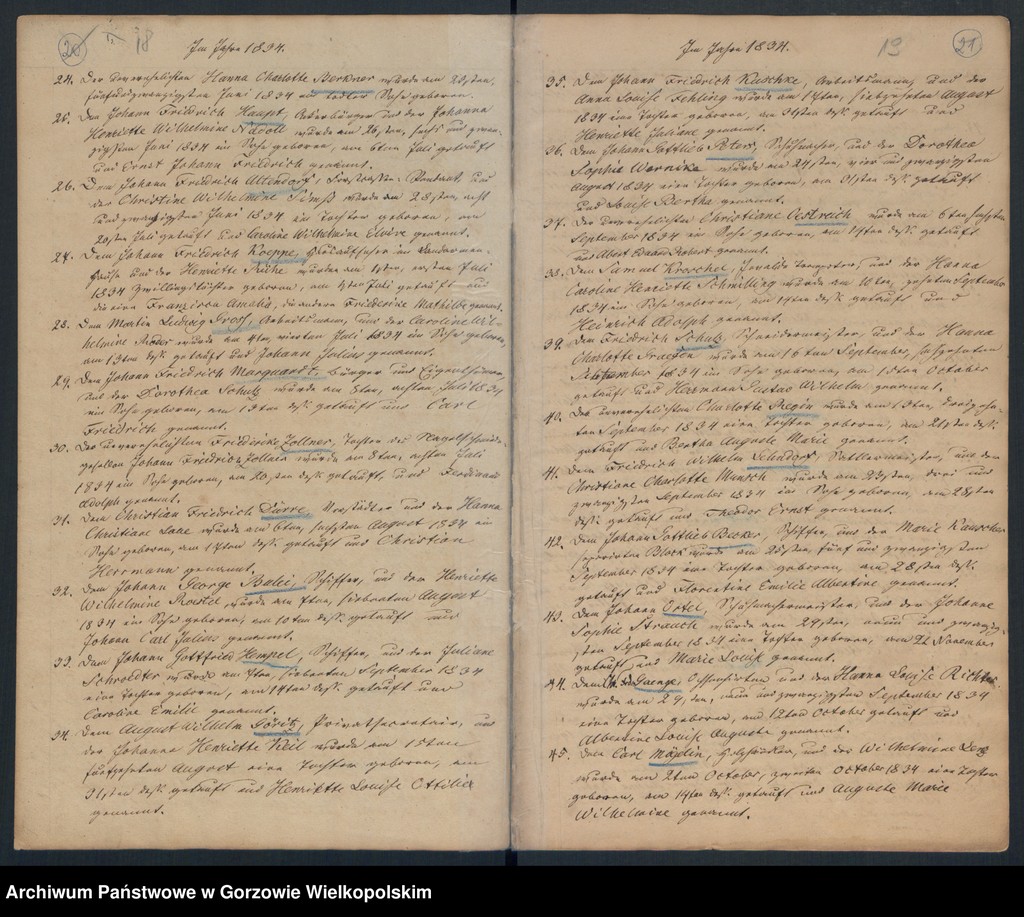 20 18
Im Jahre 1834.
24. Der unverehelichten Hanna Charlotte Berkner wurde am 25sten,
fünfundzwanzigsten Juni 1834 ein todter Sohn geboren.
25. Dem Johann Friedrich Haupt, Ackerbürger und der Johanna
Henriette Wilhelmine Nadoll wurde am 26sten, sechs und zwan-
zigsten Juni 1834 ein Sohn geboren, am 6ten Juli getauft
und Ernst Johann Friedrich genannt.
26. Dem Johann Friedrich Altendorf, und
der Christine Wilhelmine wurde am 28sten, acht
und zwanzigsten Juni 1834 eine Tochter geboren, am
20sten Juli getauft und Caroline Wilhelmine genannt.
27. Dem Johann Friedrich Koeppe, im Landarmen-
hause und der Henriette Kühe wurden am 1sten, ersten Juli
1834 Zwillingstöchter geboren, am Juli getauft und
die eine Franzisca Amalia, die andere Friederike Mathilde genannt.
28. Dem Martin Ludwig Prost, Arbeitsmann, und der Caroline Wil-
helmine wurde am 4ten, vierten Juli 1834 ein Sohn geboren,
am 13ten desselb. getauft und Johann Julius genannt.
29. Dem Johann Friedrich Marquardt, Bürger und Eigenthümer
und der Dorothea Schulz wurde am Juli 1834
ein Sohn geboren, am 13ten desselb. getauft und Carl
Friedrich genannt.
30. Der unverehelichten Friederike Zollner, Tochter des Nagelschmiede-
gesellen Johann Friedrich Zollner wurde am 8ten, achten Juli
1834 ein Sohn geboren, am 20sten desselb. getauft, und Ferdinand
Adolph genannt.
31. Dem Christian Friedrich Dürre, und der Hanna
Christiane wurde am 6ten, sechsten August 1834 ein
Sohn geboren, am 17ten desselb. getauft und Christian
Herrmann genannt.
32. Dem Johann George Balei, Schiffer, und der Henriette
Wilhelmine wurde am 7ten, siebenten August
1834 ein Sohn geboren, am 10ten desselb. getauft und
Johann Carl Julius genannt.
33. Dem Johann Gottfried Hempel, Schiffer, und der Juliane
Schroedter wurde am 7ten, siebenten September 1834
eine Tochter geboren, am 14ten desselb. getauft und
Caroline Emilie genannt.
34. Dem August Wilhelm Göritz, Privatsecretair, und
der Johanna Henriette Keil wurde am 15ten
fünfzehnten August eine Tochter geboren, am
31sten desselb. getauft und Henriette Louise Ottilie
genannt.
19 21
Im Jahre 1834.
35. Dem Johann Friedrich Kuschke, Arbeitsmann, und der
Anna Louise Fehling wurde am 17ten, siebzehnten August
1834 eine Tochter geboren, am 31sten desselb. getauft und
Henriette Juliane genannt.
36. Dem Johann Gottlieb Peters, Schuhmacher, und der Dorothea
Sophie Wernike wurde am 24sten, vier und zwanzigsten
August 1834 eine Tochter geboren, am 31sten desselb. getauft
und Louise Bertha genannt.
37. Der unverehelichten Christiane Oestreich wurde am 6ten sechsten
September 1834 ein Sohn geboren, am 14ten desselb. getauft
und Albert Eduard Robert genannt.
38. Dem Samuel Kroschel, und der Hanna
Caroline Henriette Schmilling wurde am 10ten, zehnten September
1834 ein Sohn geboren, am 14ten desselb. getauft und
Heinrich Adolph genannt.
39. Dem Friedrich Schulz, Schneidermeister, und der Hanna
Charlotte wurde am 16ten September, sechszehnten
September 1834 ein Sohn geboren, am October
getauft und Herrmann Gustav Wilhelm genannt.
40. Der unverehelichten Charlotte Regin wurde am 13ten, dreizehn-
ten September 1834 eine Tochter geboren, am 21sten desselb.
getauft und Bertha Auguste Marie genannt.
41. Dem Friedrich Wilhelm Lehndorf, Sattlermeister, und der
Christiane Charlotte Munsch wurde am 23sten, drei und
zwanzigsten September 1834 ein Sohn geboren, am 28sten
desselb. getauft und Theodor Ernst genannt.
42. Dem Johann Gottlieb Becker, Schiffer, und der Marie
Block wurde am 25sten, fünf und zwanzigsten
September 1834 eine Tochter geboren, am 28sten desselb.
getauft und Florentine Emilie Albertine genannt.
43. Dem Johann Ortel, Schuhmachermeister, und der Johanne
Sophie Strauch wurde am 29sten, neun und zwanzig-
sten September 1834 eine Tochter geboren, am November
getauft und Marie Louise genannt.
44. Dem und der Hanna Louise Richter
wurde am 29sten, neun und zwanzigsten September 1834
eine Tochter geboren, am 12ten October getauft und
Albertine Louise Auguste genannt.
45. Dem Carl und der Wilhelmine
wurde am 2ten October, zweiten October 1834 eine Tochter
geboren, am 14ten desselb. getauft und Auguste Marie
Wilhelmine genannt.
Archiwum Państwowe w Gorzowie Wielkopolskim